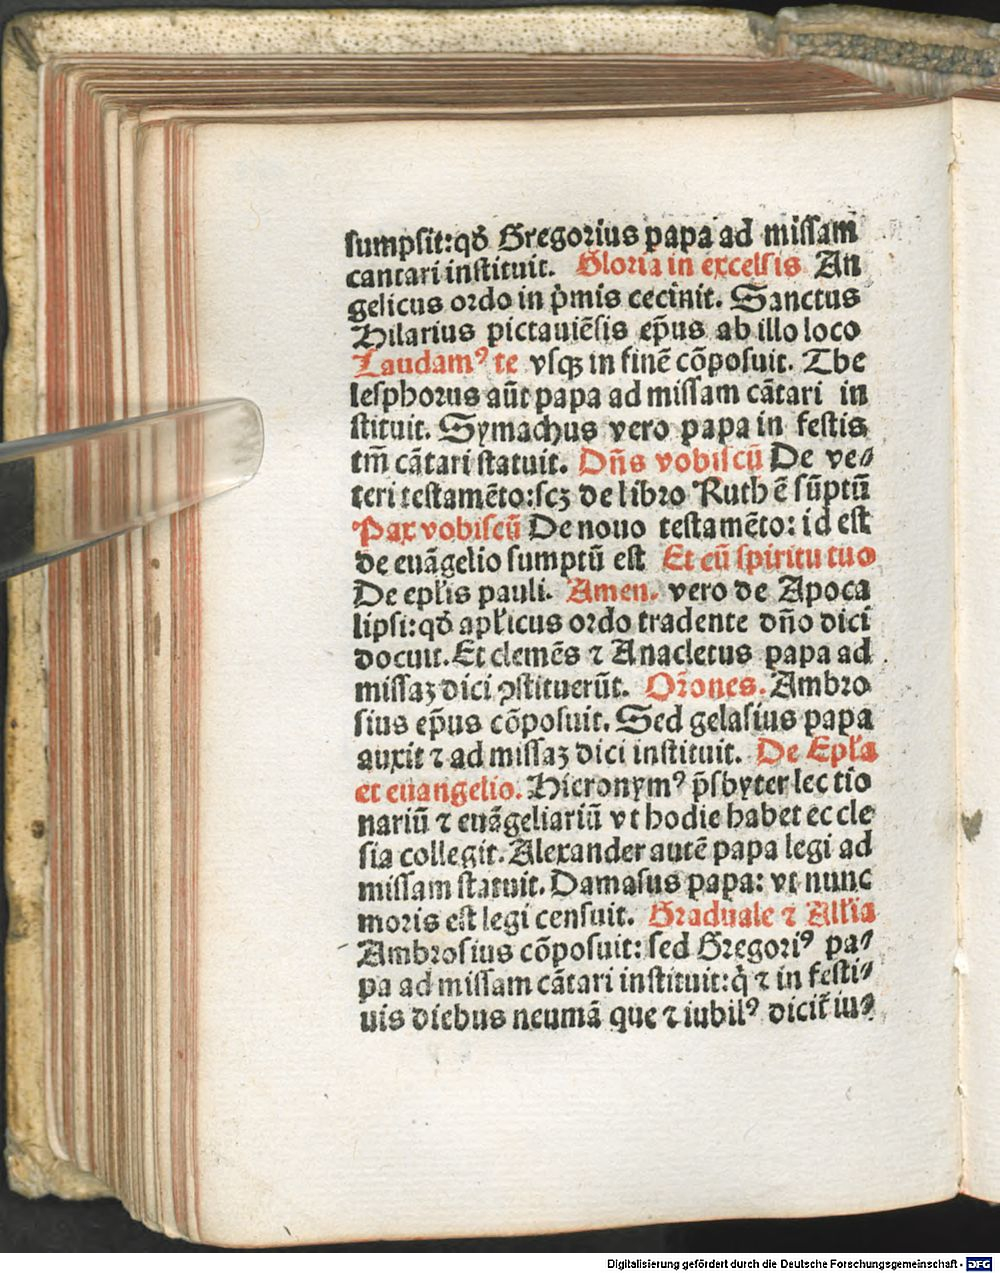 sumpsit:qď Gregorius papa ad missam
cantari instituit. Gloria in excelsis An
gelicus ordo in p̄mis cecinit. Sanctus
Hilarius pictauiēsis ep̄us ab illo loco
Laudamꝰ te vsqꝫ in finē cōposuit. The
lesphorus aūt papa ad missam cātari in
stituit. Symachus vero papa in festis
tm̄ cātari statuit. Dn̄s vobiscū De ve⸗
teri testamēto:scꝫ de libro Ruth ē sūptū
Pax vobiscū De nouo testamēto: id est
de euāgelio sumptū est Et cū spiritu tuo
De ep̄lis pauli. Amen. vero de Apoca
lipsi:qď ap̄licus ordo tradente dn̄o dici
docuit. Et clemēs ⁊ Anacletus papa ad
missaꝫ dici ꝯstituerūt. Or̄ones. Ambro
sius ep̄us cōposuit. Sed gelasius papa
auxit ⁊ ad missaꝫ dici instituit. De Ep̄la
et euangelio. Hieronymꝰ p̄sbyter lectio
nariū ⁊ euāgeliariū vt hodie habet eccle
sia collegit. Alexander autē papa legi ad
missam statuit. Damasus papa: vt nunc
moris est legi censuit. Graduale ⁊ All'ia
Ambrosius cōposuit: sed Gregoriꝰ pa⸗
pa ad missam cātari instituit:q̇ ⁊ in festi⸗
uis diebus neumā que ⁊ iubilꝰ dicit̄ iu⸗
Digitalisierung gefördert durch die Deutsche Forschungsgemeinschaft - DFG